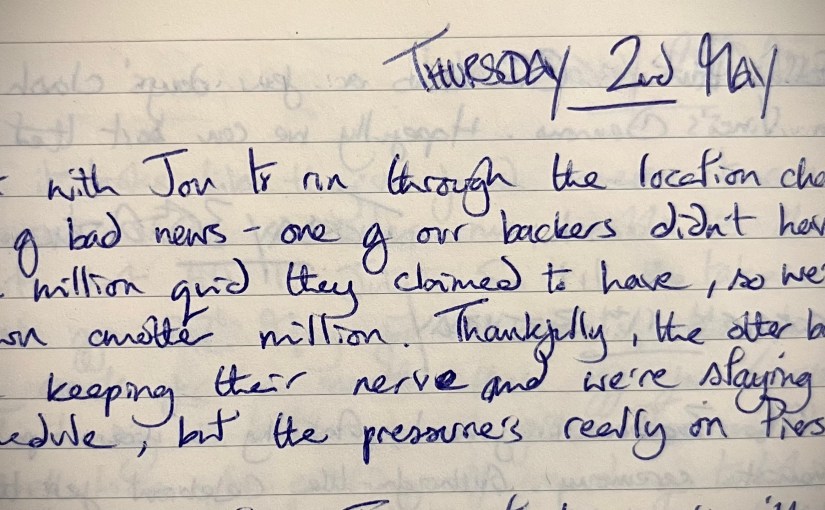 THURSDAY 2nd May
with Jon to run through the location cha
of bad news - one of our backers didn't hav
million quid they claimed to have, so we'
wn another million. Thankfully, the other b
keeping their nerve and we're staying
edule, but the pressure's really on Piers